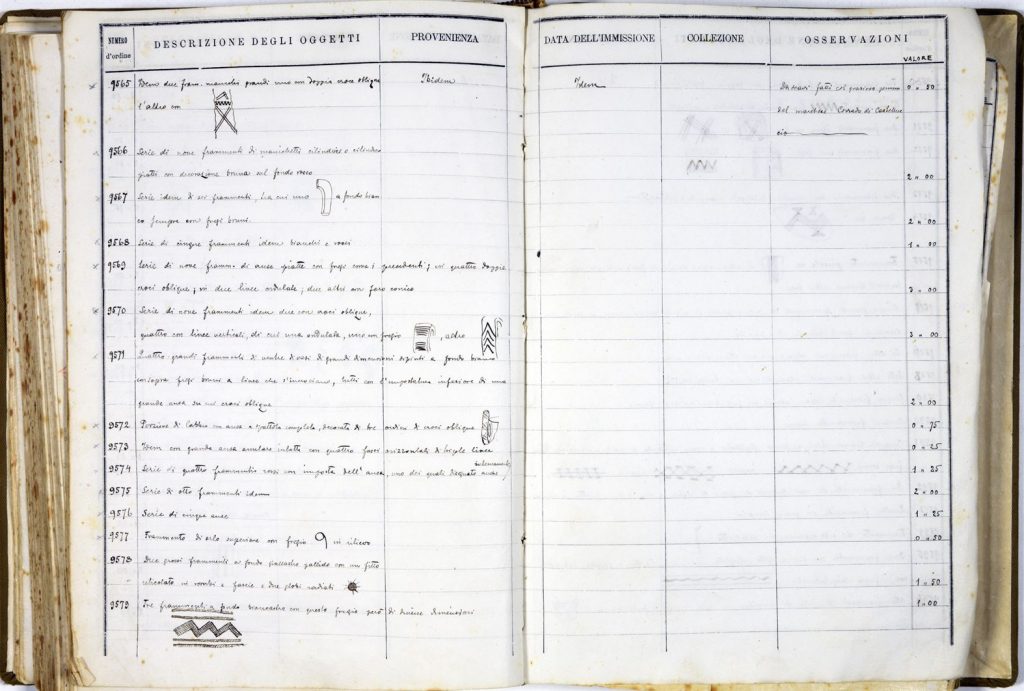 NUMERO d'ordine
DESCRIZIONE DEGLI OGGETTI
PROVENIENZA
DATA DELL'IMMISSIONE
COLLEZIONE
OSSERVAZIONI
VALORE
9565 Idem due framm. manichi grandi uno con doppia croce obliqua
l'altro con
Ibidem
Idem
Da scavi fatti
del marchese Corrado di Castelluc
cio
0 " 50
9566 Serie di nove frammenti di manichetti cilindrici o cilindro
piatti con decorazione bruna sul fondo rosso
2 " 00
9567 Serie idem di sei frammenti, tra cui uno a fondo bian
co sempre con fregi bruni.
2 " 00
9568 Serie di cinque frammenti idem bianchi e rossi
1 " 00
9569 Serie di nove framm. di anse piatte con fregi come i precedenti; in quattro doppie
croci oblique; in due linee ondulate; due altri con foro conico
3 " 00
9570 Serie di nove frammenti idem due con croci oblique,
quattro con linee verticali, di cui una ondulata, uno con fregio , altro
3 " 00
9571 Quattro grandi frammenti di ventre di vasi di grandi dimensioni dipinti a fondo bianco
fregi bruni a linee che s'incrociano, tutti con l'impostatura inferiore di una
grande ansa su cui croci oblique
2 " 00
9572 Porzione di con ansa e completa, decorata di tre ordini di croci oblique
0 " 75
9573 Idem con grande ansa anulare intatta con quattro fasci orizzontali di triplo linea
0 " 25
9574 Serie di quattro frammenti rossi con imposta dell'ansa, uno dei quali internamente anche
1 " 25
9575 Serie di otto frammenti idem
2 " 00
9576 Serie di cinque anse
1 " 25
9577 Frammento di orlo superiore con fregio in rilievo
0 " 50
9578 Due grossi frammenti a fondo giallastro pallido con un fitto
reticolato in rombi e fascie e due globi radiati
1 " 50
9579 Tre frammenti a fondo biancastro con questo fregio però di diverse dimensioni
1 " 00